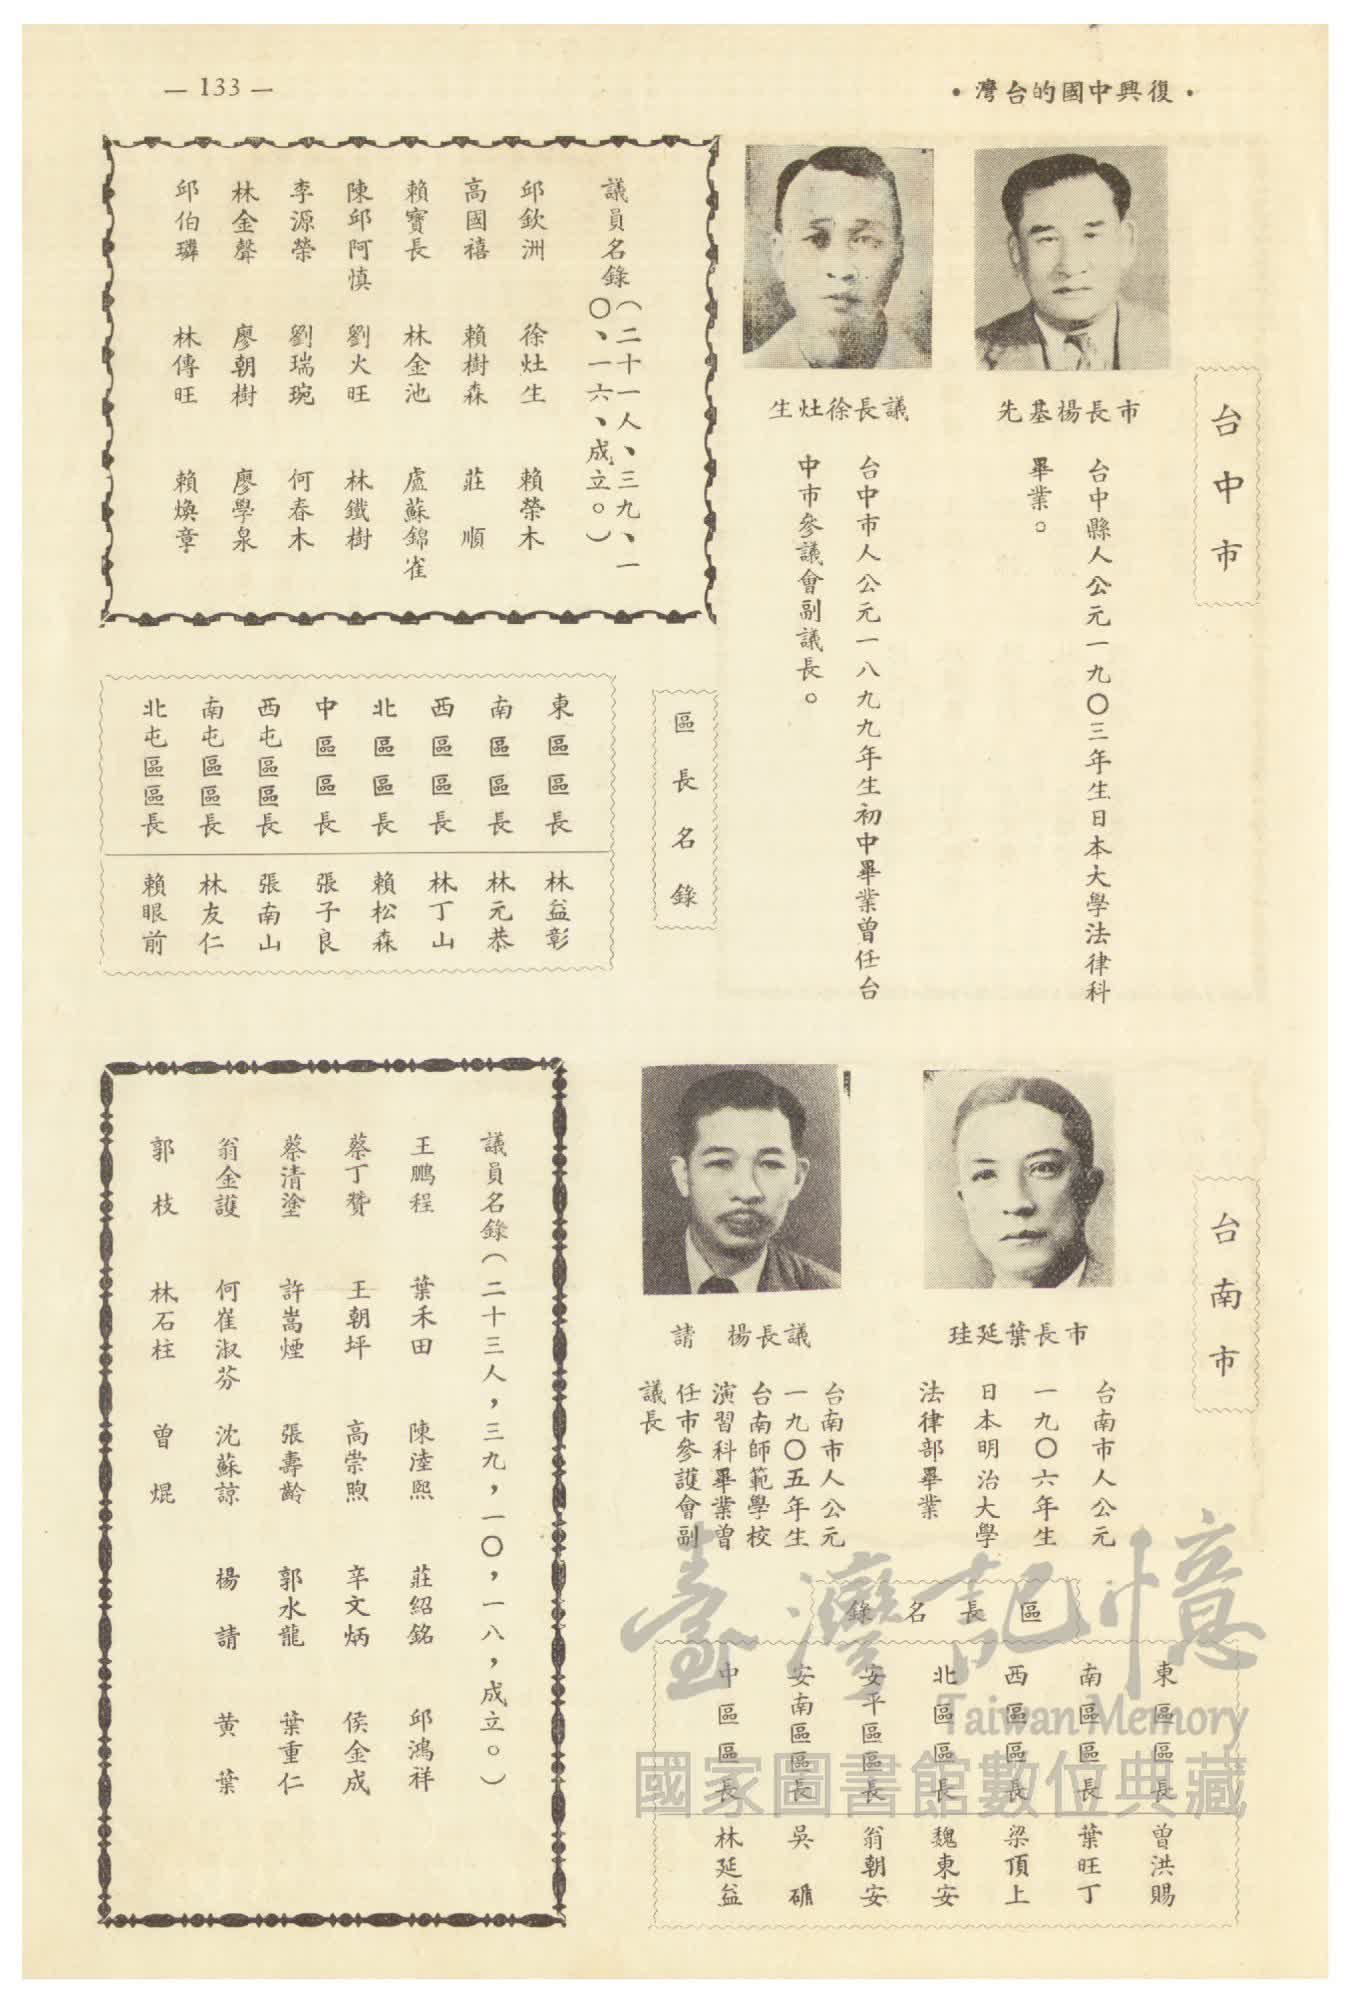 — 133 —
•灣台的國中興復•
台中市
市長楊基先
台中縣人公元一九〇三年生日本大學法律科
畢業。
議長徐灶生
台中市人公元一八九九年生初中畢業曾任台
中市參議會副議長。
議員名錄(二十一人、三九、一
〇、一六、成立。)
邱欽洲 徐灶生 賴榮木
高國禧 賴樹森 莊順
賴寶長 林金池 盧蘇錦雀
陳邱阿慎 劉火旺 林鐵樹
李源榮 劉瑞琬 何春木
林金聲 廖朝樹 廖學泉
邱伯璘 林傳旺 賴煥章
區長名錄
東區區長 林益彰
南區區長 林元恭
西區區長 林丁山
北區區長 賴松森
中區區長 張子良
西屯區區長 張南山
南屯區區長 林友仁
北屯區區長 賴眼前
台南市
市長葉廷珪
台南市人公元
一九〇六年生
日本明治大學
法律部畢業
議長楊 請
台南市人公元
一九〇五年生
台南師範學校
演習科畢業曾
任市參護會副
議長
區長名錄
東區區長 曾洪賜
南區區長 葉旺丁
西區區長 梁頂上
北區區長 魏東安
安平區區長 翁朝安
安南區區長 吳
中區區長 林延益
議員名錄(二十三人,三九,一〇,一八,成立。)
王鵬程 葉禾田 陳淕熙 莊紹銘 邱鴻祥
蔡丁贊 王朝坪 高崇煦 辛文炳 侯金成
蔡清塗 許嵩煙 張壽齡 郭水龍 葉重仁
翁金護 何崔淑芬 沈蘇諒 楊請 黃葉
郭枝 林石柱 曾焜
臺灣記憶
Taiwan Memory
國家圖書館數位典藏